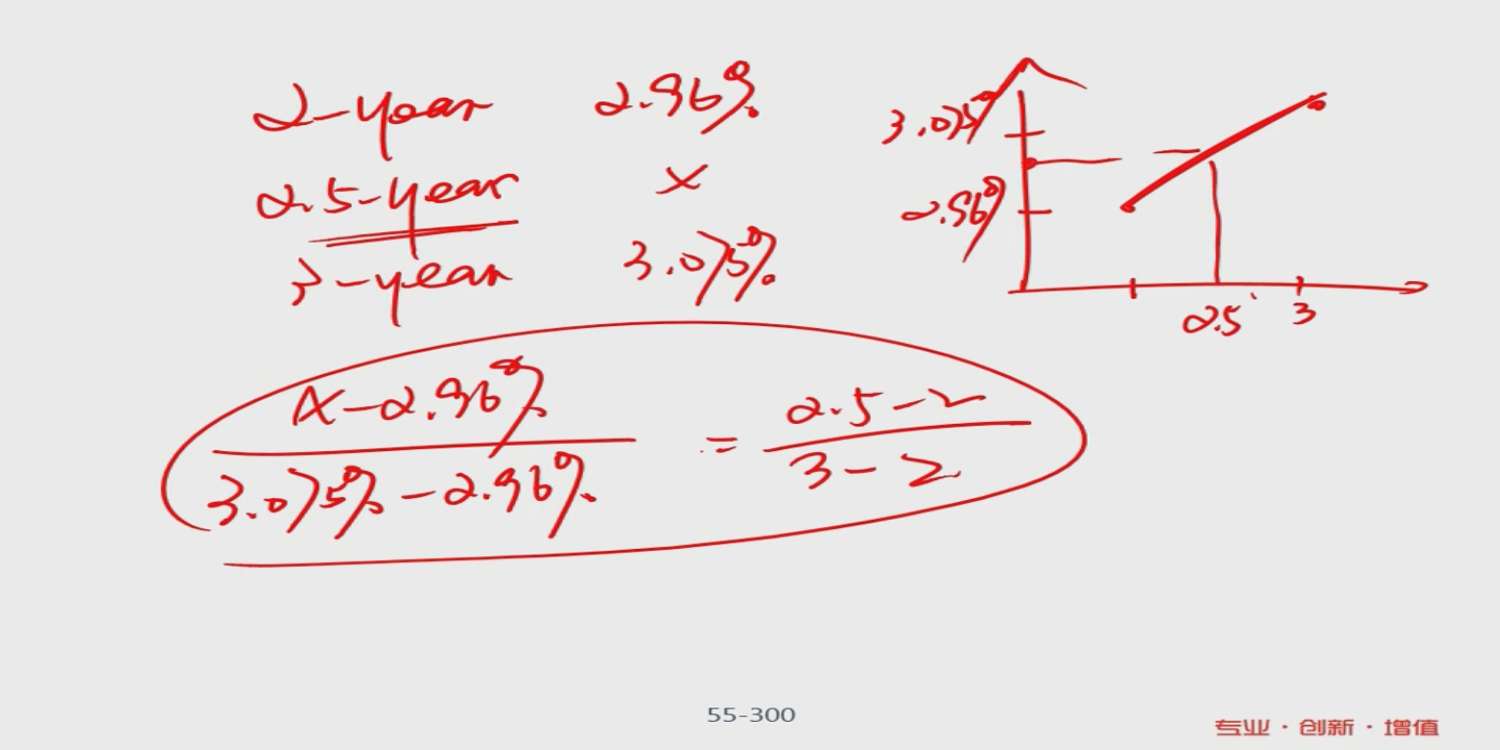 2-year 2.96%
2.5-year x
3-year 3.075%
3.075%
2.96%
2.5 3
x-2.96% = 2.5-2
3.075%-2.96% 3-2
55-300
专业·创新·增值